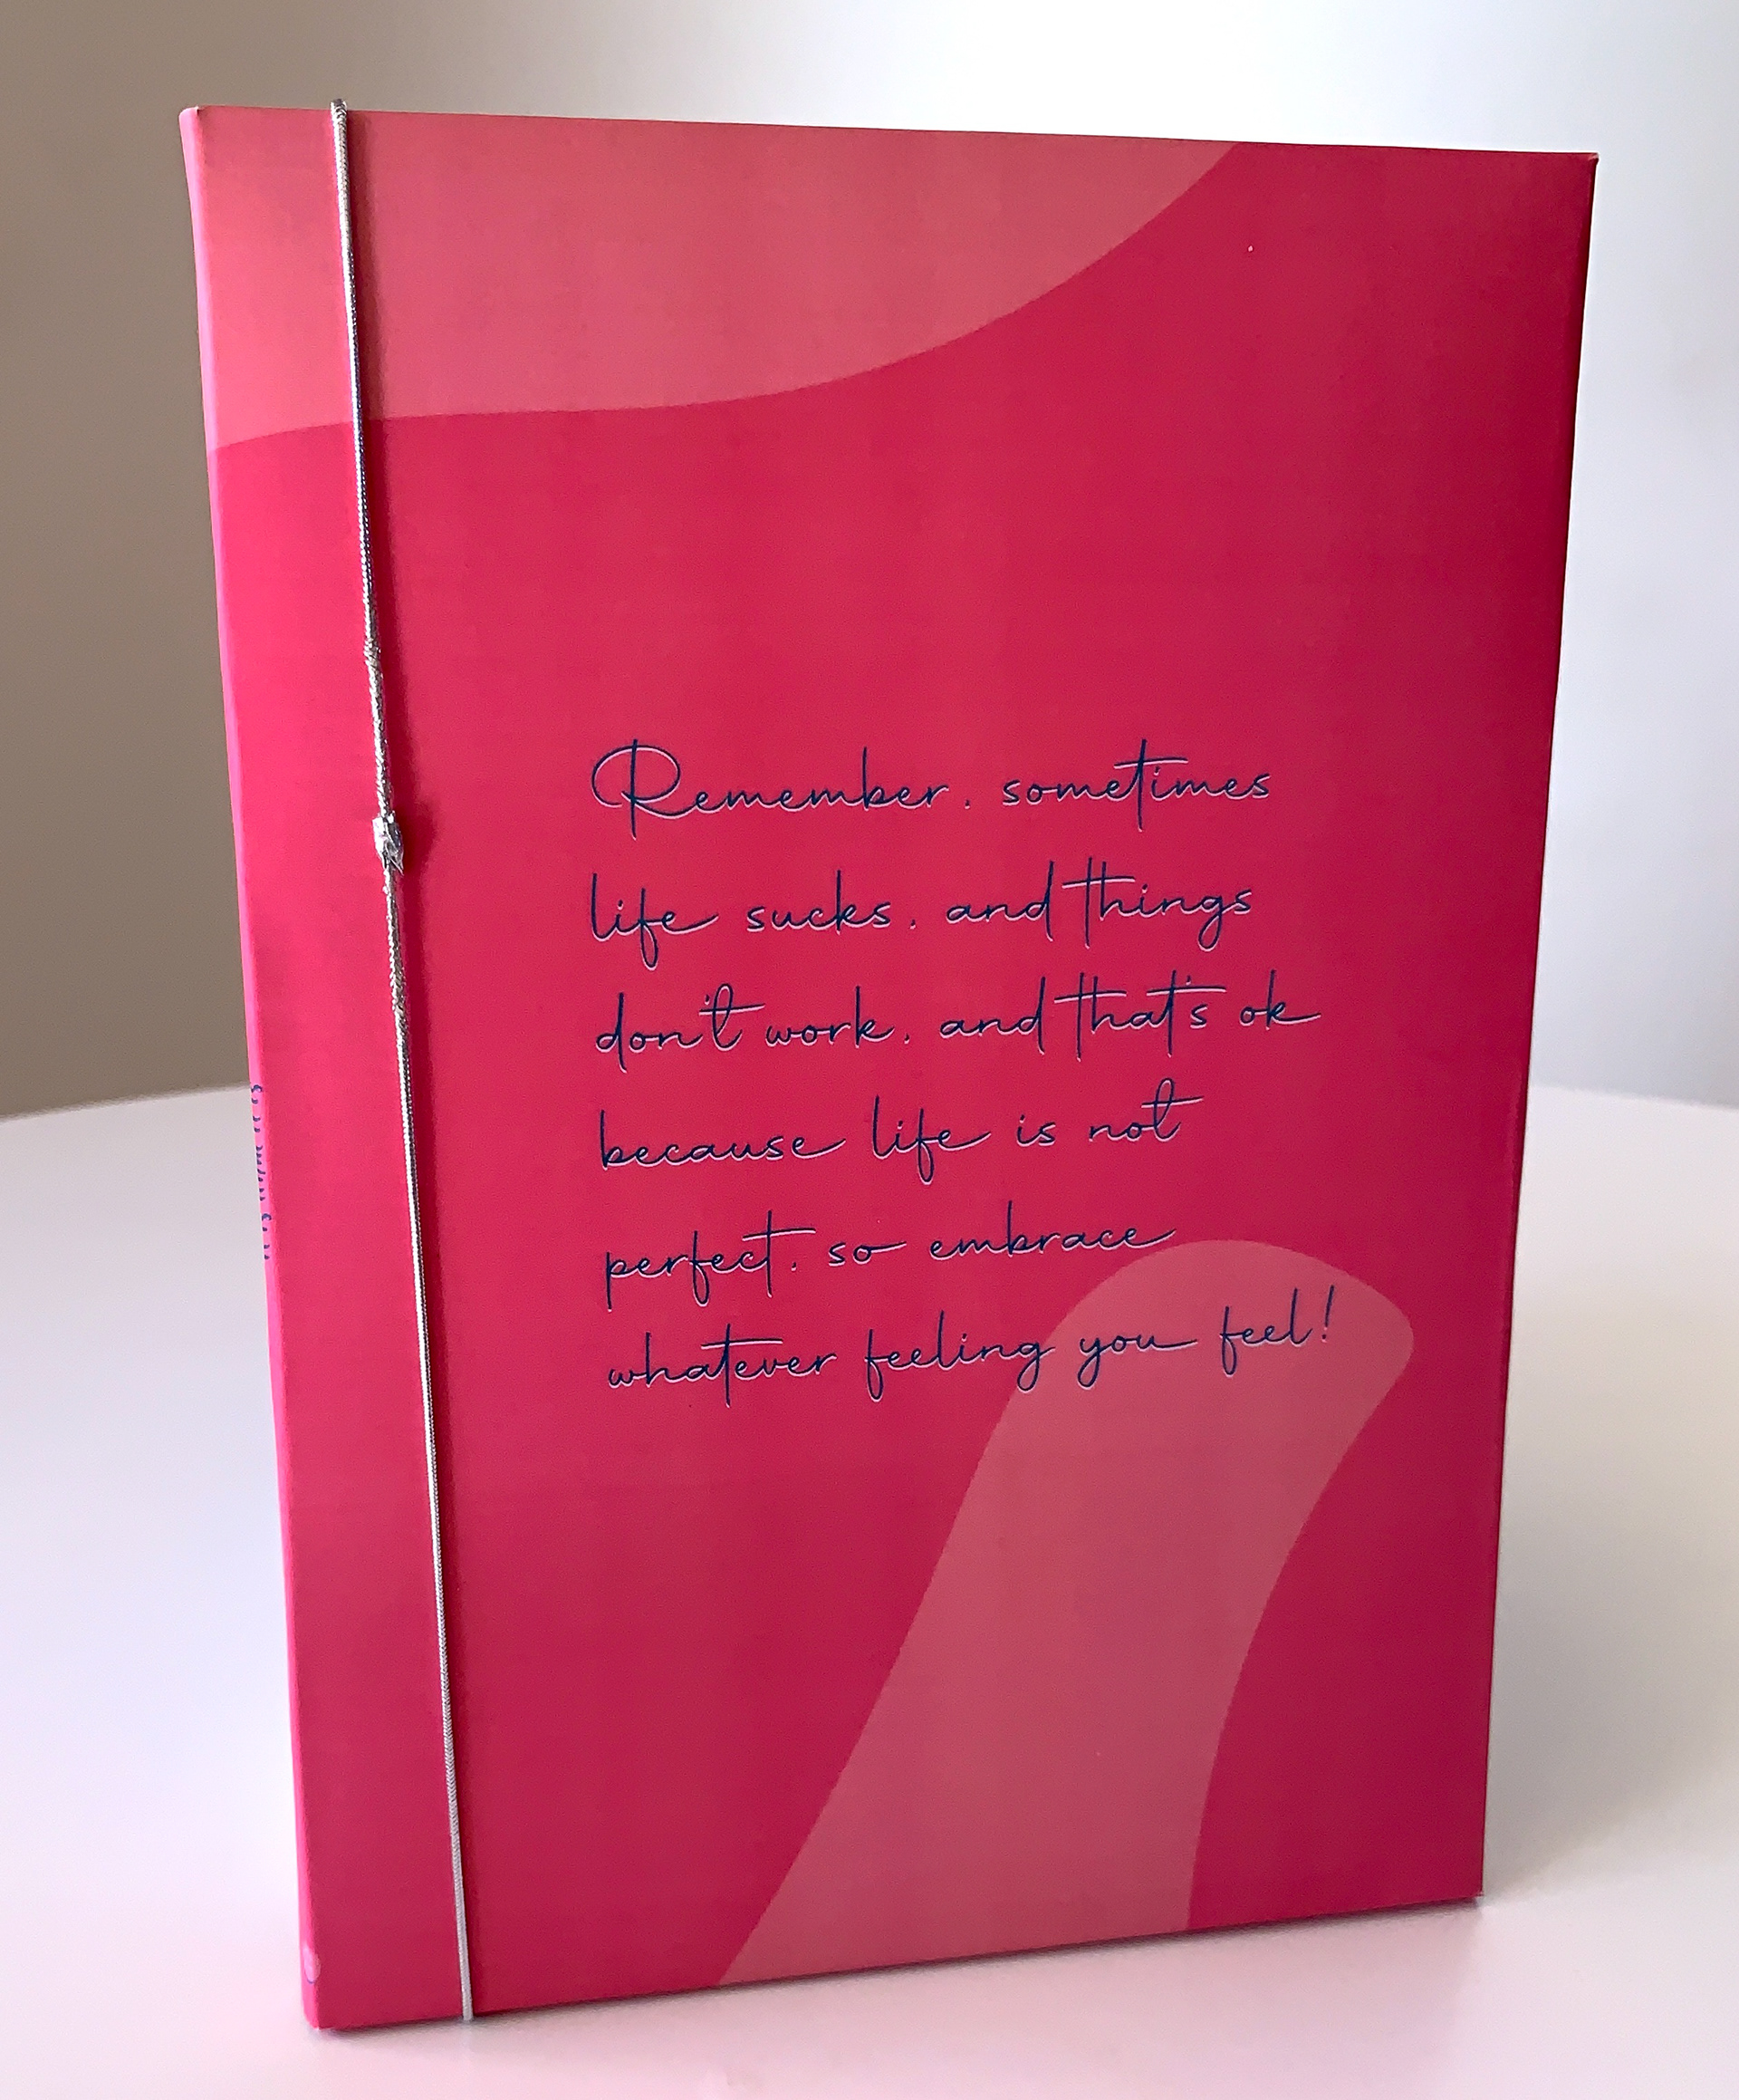 Remember, sometimes
life sucks, and things
don't work, and that's ok
because life is not
perfect, so embrace
whatever feeling you feel!